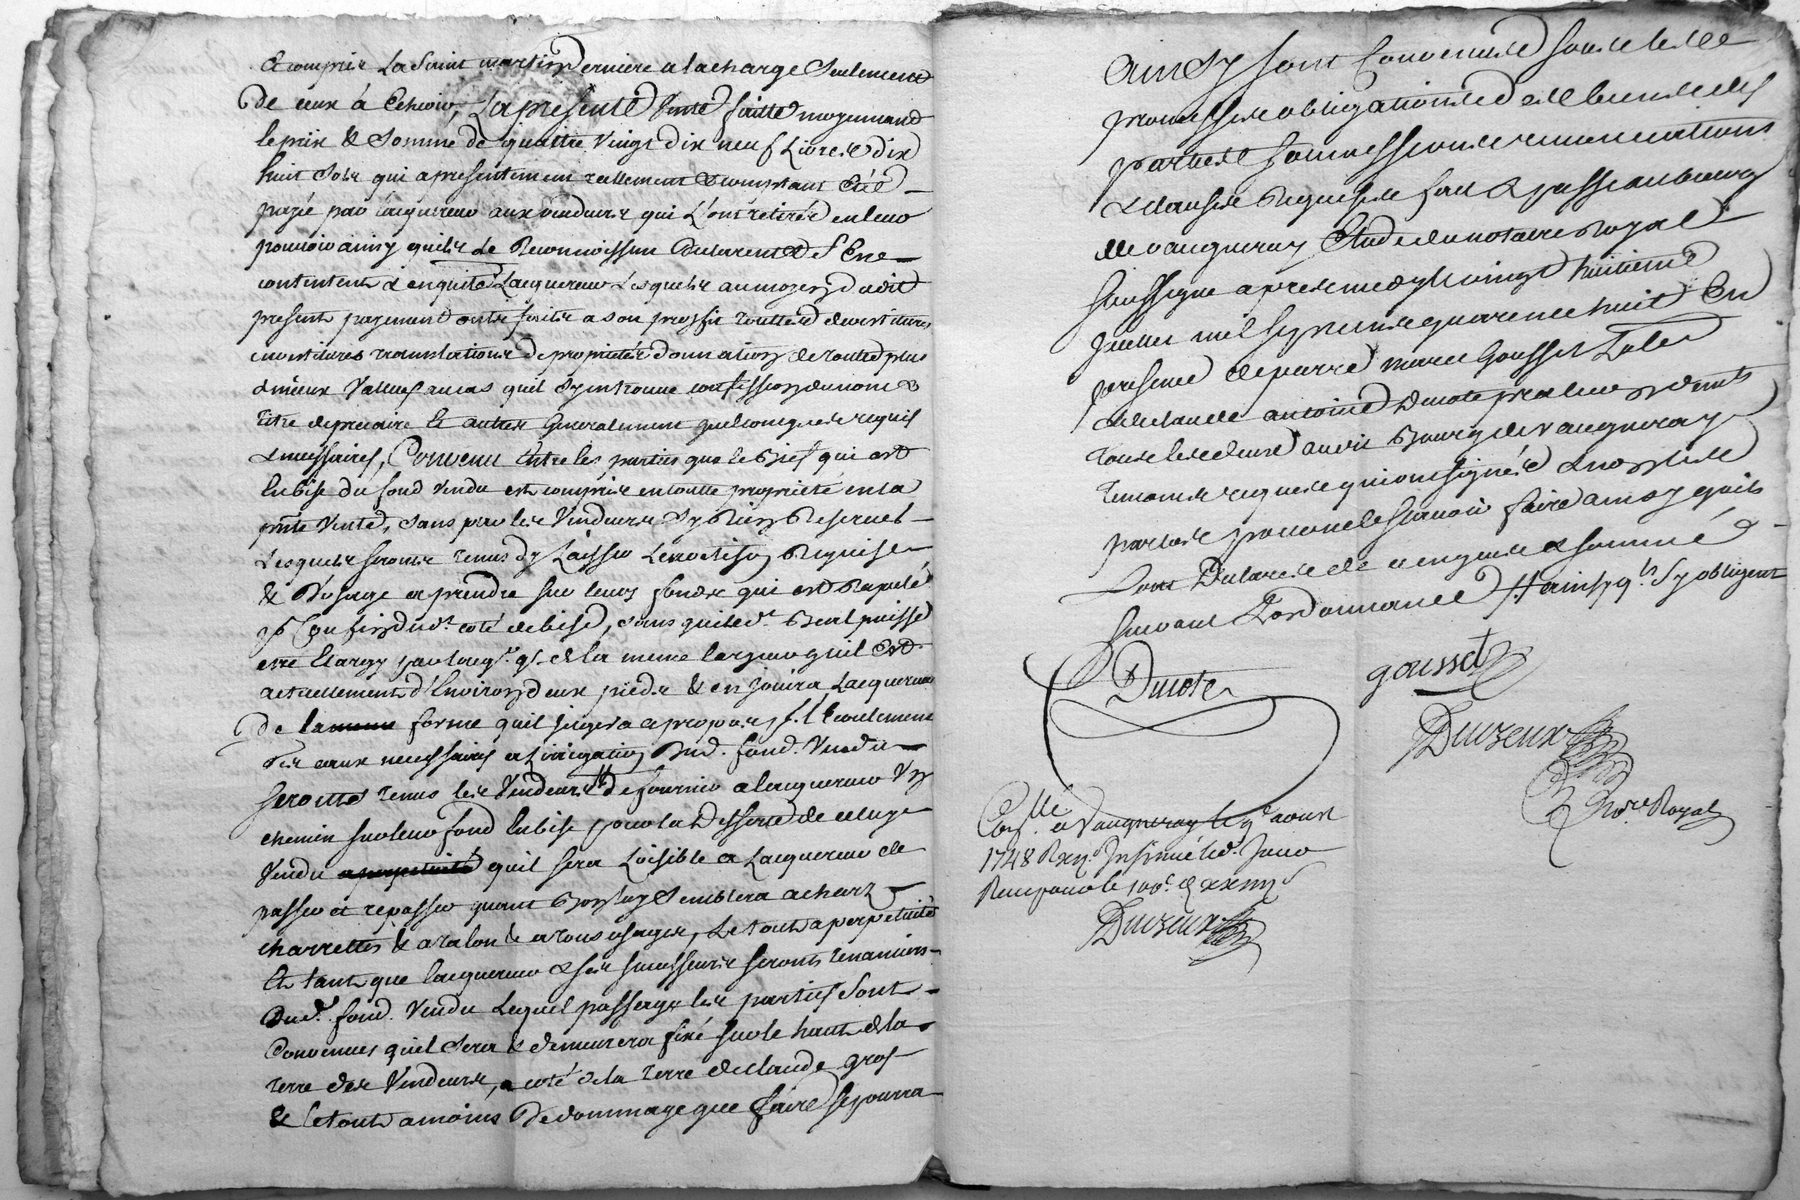 & compris La Saint martin Derniere a la charge Seulement
de ceux à Echoir, La presente vente faitte moyennand
le prix & Somme de quattre vingt dix neuf Livres & dix
huit Sols qui a presentement reellement & comptant Eté
payé par lacquereur aux vendeurs qui L'ont retirés en leur
pouvoir ainsy quils Le Reconnoissent Declarent & S'En
contentent & en quitte Lacquereur Lesquels au moyen dudit
present payement ont faits a son proffit touttes devestitures
investitures translations de proprietés donnation de toutte plus
& mieux Vallue au cas quil Sy en trouve confession de nom &
titre de precaire Et autres Generalement quelconques requis
& necessaires, Convenu Entre les parties que le Bief qui est
En bise du fond vendu est compris en toutte propriete en la
pnte vente, Sans par les Vendeurs Sy Rien Reserver
Lesquels seront tenus dy Laisser Requise
& D'usage a prendre sur leurs fonds qui est Rapelé
Confin dud. coté de bise, Sans quil led. Bief puisse
etre Elargy par lacqr. de la meme largeur quil Est
actuellement d'Environ deux pieds & en jouira Lacquereur
de la forme quil jugera a propos p. l'Ecoulement
des eaux necessaires a L'irrigation Dud. fond. Vendu
Seronts tenus les Vendeurs de fournir a lacquereur Un
chemin sur leur fond En bise pour la Desserte de celuy
Vendu quil sera Loisible a Lacquereur de
passer et repasser quant Bon luy Semblera a chars
charrettes & a talon & a tous usages, Le tout a perpetuité
Et tant que lacquereur & ses successeurs seronts tenanciers
Dud. fond. Vendu Lequel passage les parties Sont
Convenues quil Sera & demeurera fixé sur le haut de la
terre des Vendeurs, a coté de la terre de claude gros
& le tout a moins De dommage que faire se pourra
Ainsy sont Convenus
promesses obligations de biens
parties soumissions & renonciations
& clauses Requises fait & passé au bourg
de vaugneray Etude du notaire Royal
soussigné apres midy le vingt huitieme
juillet mil sept cents quarente huit En
presence de pierre marie Gousset
& de claude antoine Ducote praticien
tous les deux audit Bourg de vaugneray
temoins requis qui ont signés & non les
parties pour ne le sçavoir faire ainsy quils
l'ont Declaré de ce enquis & sommé
suivant L'ordonnance // ainsy qls Sy obligent
Ducote
gousset
Duvzeux
Nore. Royal
Conllé a Vaugneray le 9e aoust
1748 Insinué led. Jour
Duvzeux